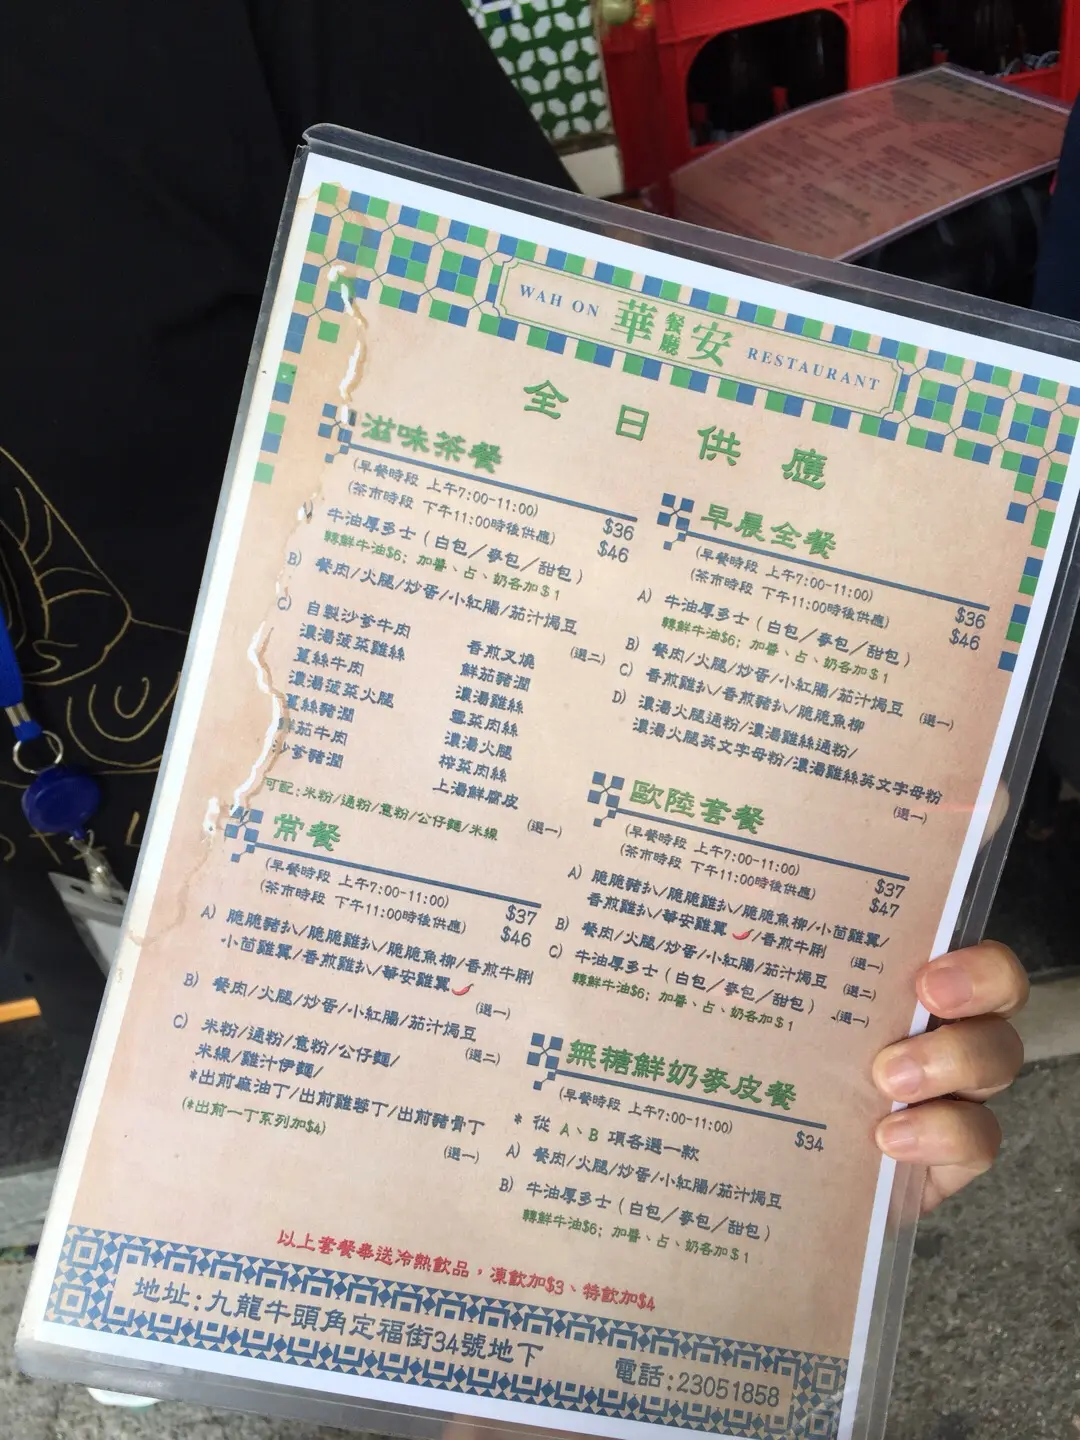 WAH ON 華安 餐廳 RESTAURANT
全日供應
滋味茶餐
(早餐時段 上午7:00-11:00) $36
(茶市時段 下午11:00時後供應) $46
牛油厚多士（白包／麥包／甜包）
轉鮮牛油$6; 加醬、占、奶各加$1
B) 餐肉/火腿/炒蛋/小紅腸/茄汁焗豆
(選二)
C) 自製沙爹牛肉
濃湯菠菜雞絲
薑絲牛肉
濃湯菠菜火腿
薑絲豬潤
鮮茄牛肉
沙爹豬潤
香煎叉燒
鮮茄豬潤
濃湯雞絲
雪菜肉絲
濃湯火腿
榨菜肉絲
上湯鮮腐皮
(選一)
可配:米粉/通粉/意粉/公仔麵/米線
常餐
(早餐時段 上午7:00-11:00) $37
(茶市時段 下午11:00時後供應) $46
A) 脆脆豬扒/脆脆雞扒/脆脆魚柳/香煎牛脷
小茴雞翼/香煎雞扒/華安雞翼
(選一)
B) 餐肉/火腿/炒蛋/小紅腸/茄汁焗豆
(選二)
C) 米粉/通粉/意粉/公仔麵/
米線/雞汁伊麵/
*出前麻油丁/出前雞蓉丁/出前豬骨丁
(*出前一丁系列加$4)
(選一)
早晨全餐
(早餐時段 上午7:00-11:00) $36
(茶市時段 下午11:00時後供應) $46
A) 牛油厚多士（白包／麥包／甜包）
轉鮮牛油$6; 加醬、占、奶各加$1
B) 餐肉/火腿/炒蛋/小紅腸/茄汁焗豆 (選一)
C) 香煎雞扒/香煎豬扒/脆脆魚柳
D) 濃湯火腿通粉/濃湯雞絲通粉/
濃湯火腿英文字母粉/濃湯雞絲英文字母粉
(選一)
歐陸套餐
(早餐時段 上午7:00-11:00) $37
(茶市時段 下午11:00時後供應) $47
A) 脆脆豬扒/脆脆雞扒/脆脆魚柳/小茴雞翼/
香煎雞扒/華安雞翼/香煎牛脷 (選一)
B) 餐肉/火腿/炒蛋/小紅腸/茄汁焗豆 (選二)
C) 牛油厚多士（白包／麥包／甜包） (選一)
轉鮮牛油$6; 加醬、占、奶各加$1
無糖鮮奶麥皮餐
(早餐時段 上午7:00-11:00) $34
* 從 A、B 項各選一款
A) 餐肉/火腿/炒蛋/小紅腸/茄汁焗豆
B) 牛油厚多士（白包／麥包／甜包）
轉鮮牛油$6; 加醬、占、奶各加$1
以上套餐奉送冷熱飲品，凍飲加$3、特飲加$4
地址:九龍牛頭角定福街34號地下
電話:23051858